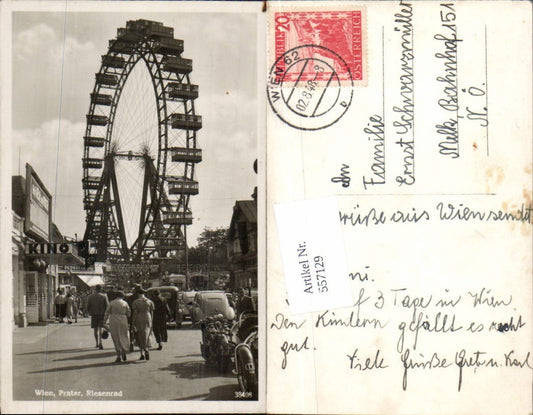 KINO
Wien, Prater, Riesenrad
20
ÖSTERREICH
WIEN 62
02.8.48-8
b
An
Familie
Ernst Schwarzmüller
Melk, Bahnhof. 151
N. Ö.
Artikel Nr.
557129
aus Wien sendet
3 Tage in Wien,
Den Kindern gefällt es recht
gut.
Viele Grüße Gret u. Karl